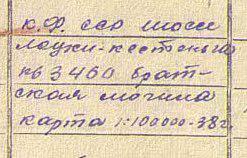 к.ф. сср шоссе
лоухи-кестеньга
кв 3460 брат-
ская могила
карта 1:100000-38г.